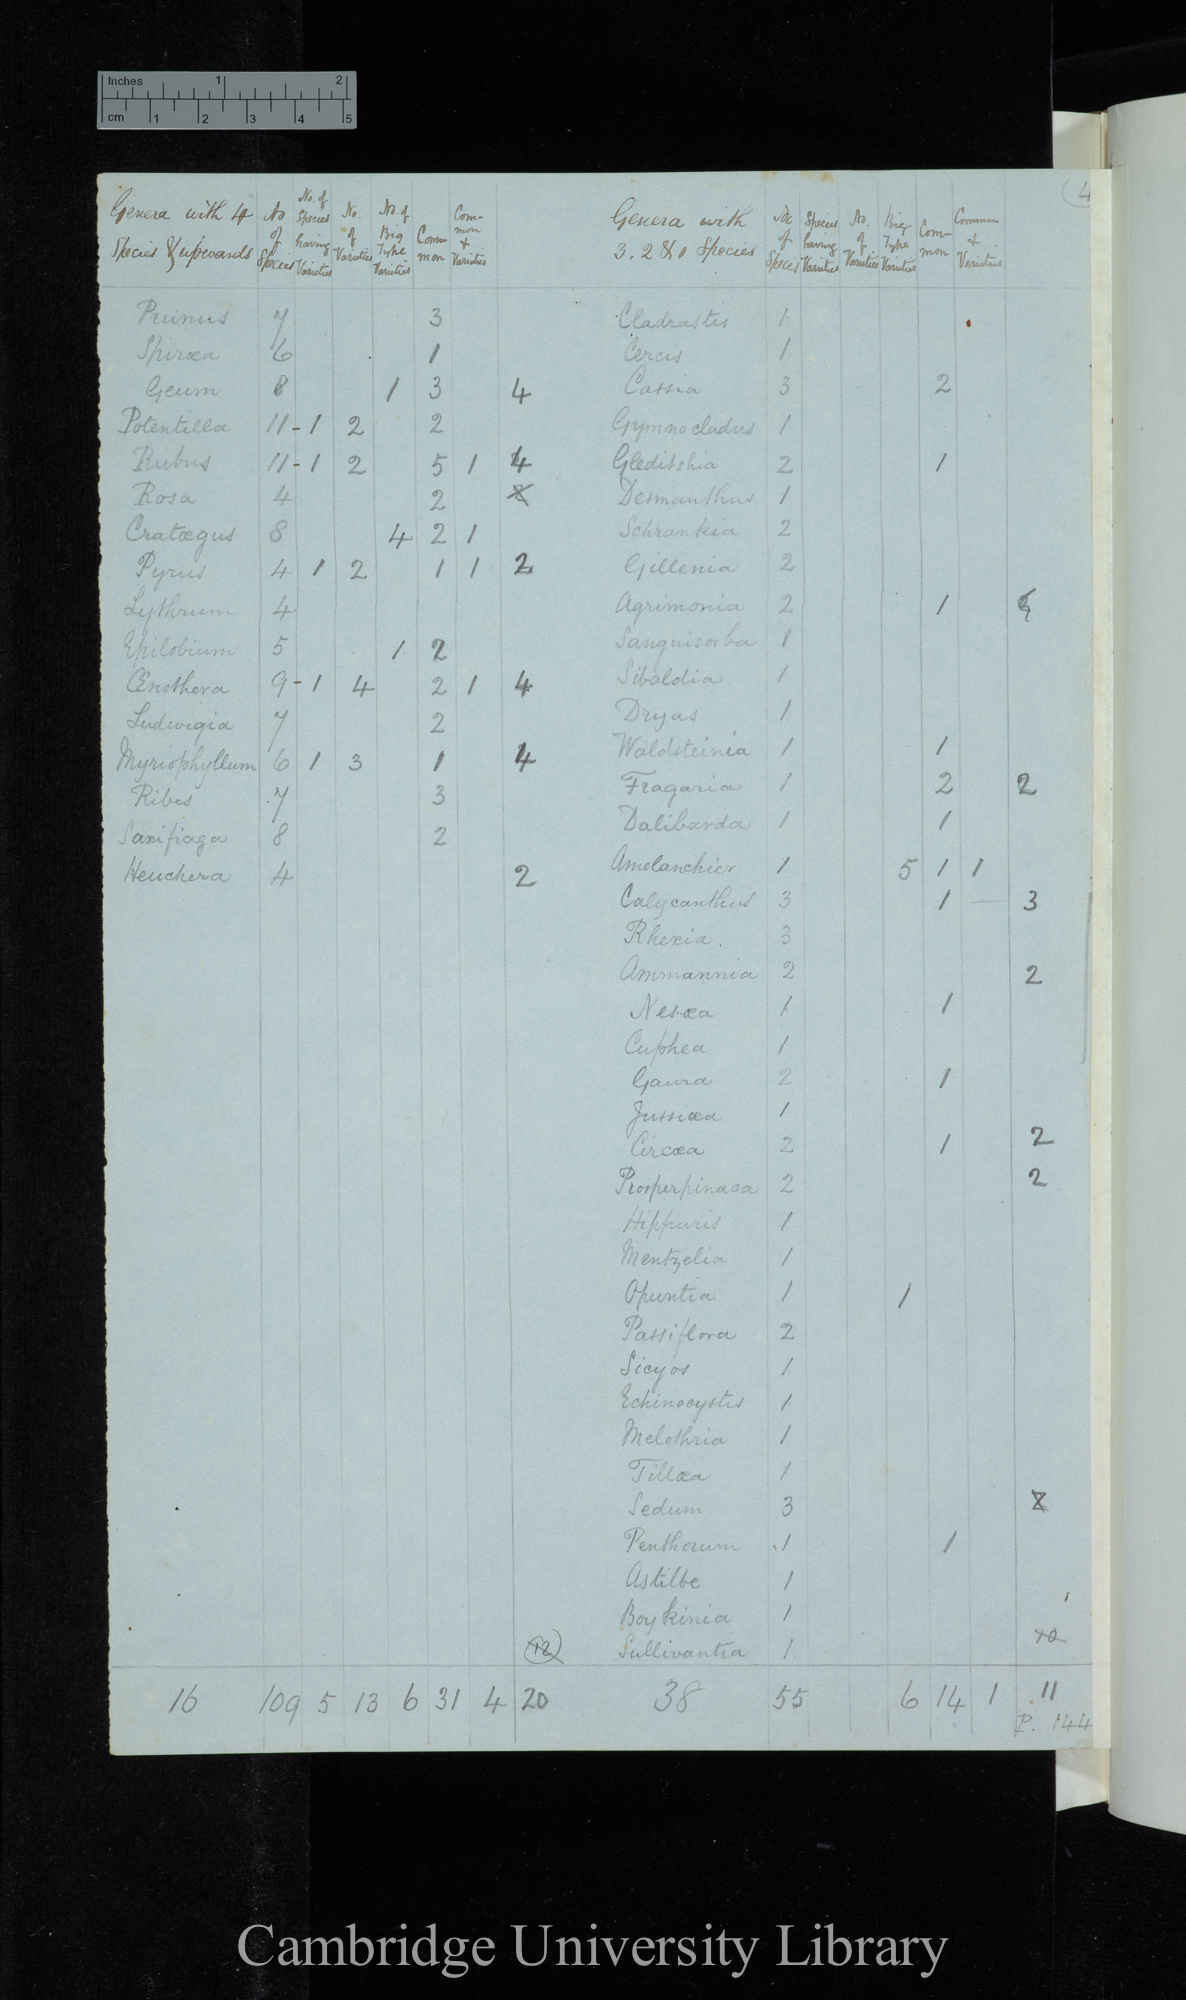 Inches 1 2
cm 1 2 3 4 5
4
Genera with 4 Species & upwards | No of Species | No. of Species having Varieties | No. of Varieties | No. of Big Type Varieties | Com-mon | Com-mon & Varieties
Prunus 7 3
Spiræa 6 1
Geum 8 1 3 4
Potentilla 11 - 1 2 2
Rubus 11 - 1 2 5 1 4
Rosa 4 2
Cratægus 8 4 2 1
Pyrus 4 1 2 1 1 2
Lythrum 4
Epilobium 5 1 2
Œnothera 9 - 1 4 2 1 4
Ludwigia 7 2
Myriophyllum 6 1 3 1 4
Ribes 7 3
Saxifraga 8 2
Heuchera 4 2
12
16 109 5 13 6 31 4 20
Genera with 3. 2 & 1 Species | No of Species | Species having Varieties | No. of Varieties | Big Type Varieties | Com-mon | Common & Varieties
Cladrastis 1
Cercis 1
Cassia 3 2
Gymnocladus 1
Gleditshia 2 1
Desmanthus 1
Schrankia 2
Gillenia 2
Agrimonia 2 1
Sanguisorba 1
Sibaldia 1
Dryas 1
Waldsteinia 1 1
Fragaria 1 2 2
Dalibarda 1 1
Amelanchier 1 5 1 1
Calycanthus 3 1 3
Rhexia. 3
Ammannia 2 2
Nesæa 1 1
Cuphea 1
Gaura 2 1
Jussiæa 1
Circæa 2 1 2
Prosperpinaca 2 2
Hippuris 1
Mentzelia 1
Opuntia 1 1
Passiflora 2
Sicyos 1
Echinocystis 1
Melothria 1
Tillæa 1
Sedum 3
Penthorum 1 1
Astilbe 1
Boykinia 1
Sullivantia 1 10
38 55 6 14 1 11
P. 144
Cambridge University Library